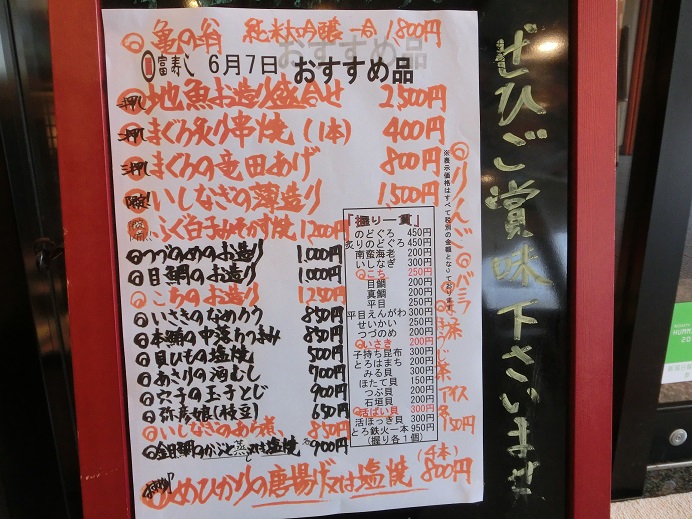 亀の翁 純米大吟醸 一合 1800円
富寿し 6月7日 おすすめ品
一押し 地魚お造り盛合せ 2,500円
二押し まぐろ炙り串焼(1本) 400円
三押し まぐろの竜田あげ 800円
限定! いしなぎの薄造り 1,500円
ふぐ白子みそかす焼 1200円
つづのめのお造り 1,000円
目鯛のお造り 1,000円
こちのお造り 1250円
いさきのなめろう 850円
本鮪の中落ちつまみ 850円
貝ひもの塩焼 500円
あさりの酒むし 700円
穴子の玉子とじ 900円
弥彦娘(枝豆) 650円
いしなぎのあら煮 850円
金目鯛のかぶと蒸し又は塩焼 900円
めひかりの唐揚げ又は塩焼 (4本) 800円
『握り一貫』
のどぐろ 450円
炙りのどぐろ 450円
南蛮海老 200円
いしなぎ 300円
こち 250円
目鯛 200円
真鯛 200円
平目 250円
平目えんがわ 300円
せいかい 250円
つづのめ 200円
いさき 200円
子持ち昆布 300円
とろはまち 200円
みる貝 300円
ほたて貝 150円
つぶ貝 200円
石垣貝 200円
活ばい貝 300円
活ほっき貝 300円
とろ鉄火一本 950円
(握り各1個)
※表示価格はすべて税別の金額となっております。
りんご
バニラ
抹茶
ほうじ茶
アイス
各150円
ぜひご賞味下さいませ